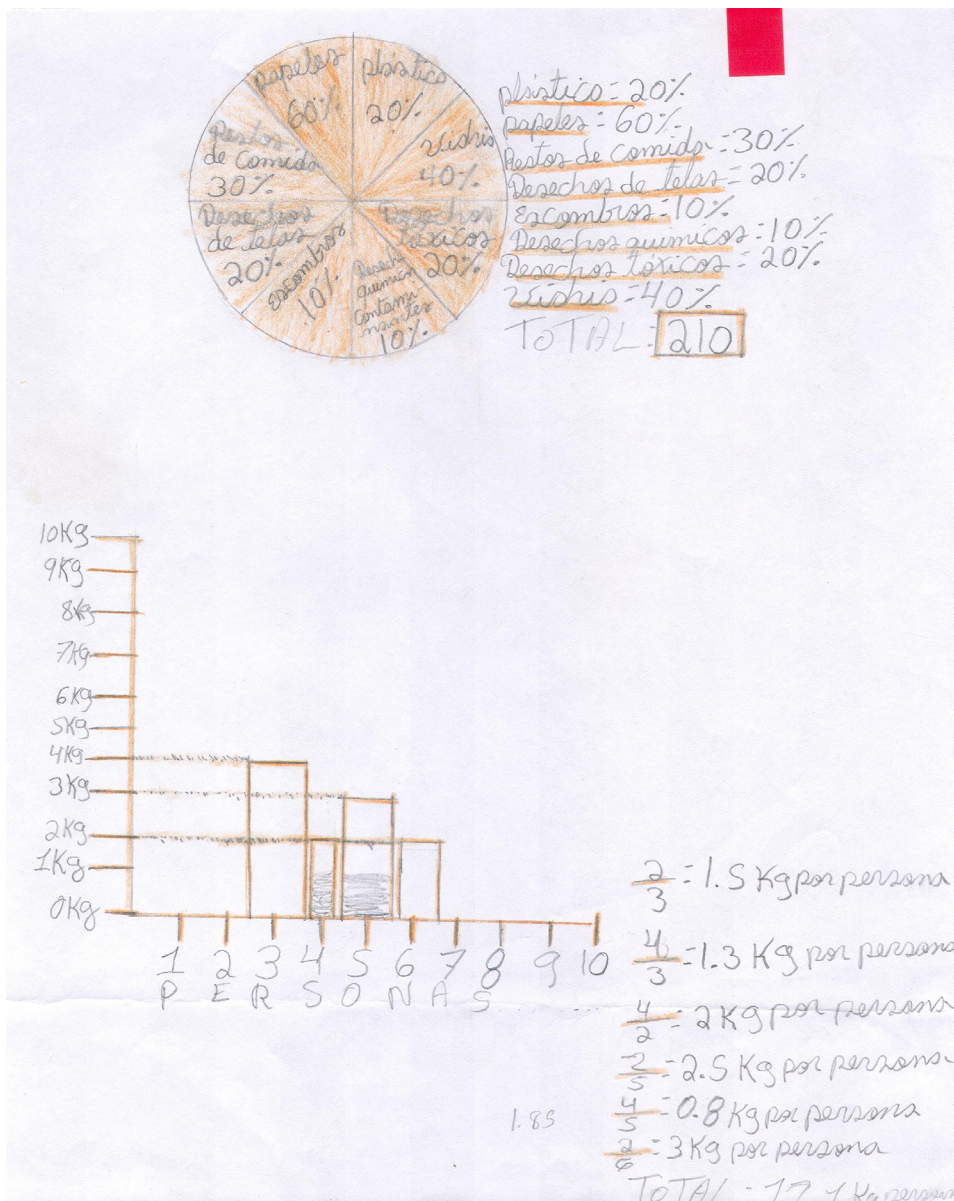 papeles
60%
plástico
20%
Vidrio
40%
Restos
de Comida
30%
Desechos
de telas
20%
Escombros
10%
Desechos
tóxicos
20%
10%
plástico = 20%
papeles = 60%
Restos de comida = 30%
Desechos de telas = 20%
Escombros = 10%
Desechos quimicos = 10%
Desechos tóxicos = 20%
Vidrio = 40%
TOTAL = 210
10Kg
9Kg
8Kg
7Kg
6Kg
5Kg
4Kg
3Kg
2Kg
1Kg
0Kg
1 2 3 4 5 6 7 8 9 10
PERSONAS
2/3 = 1.5 Kg por persona
4/3 = 1.3 Kg por persona
4/2 = 2 Kg por persona
2/5 = 2.5 Kg por persona
4/5 = 0.8 Kg por persona
2/6 = 3 Kg por persona
1.85
TOTAL =